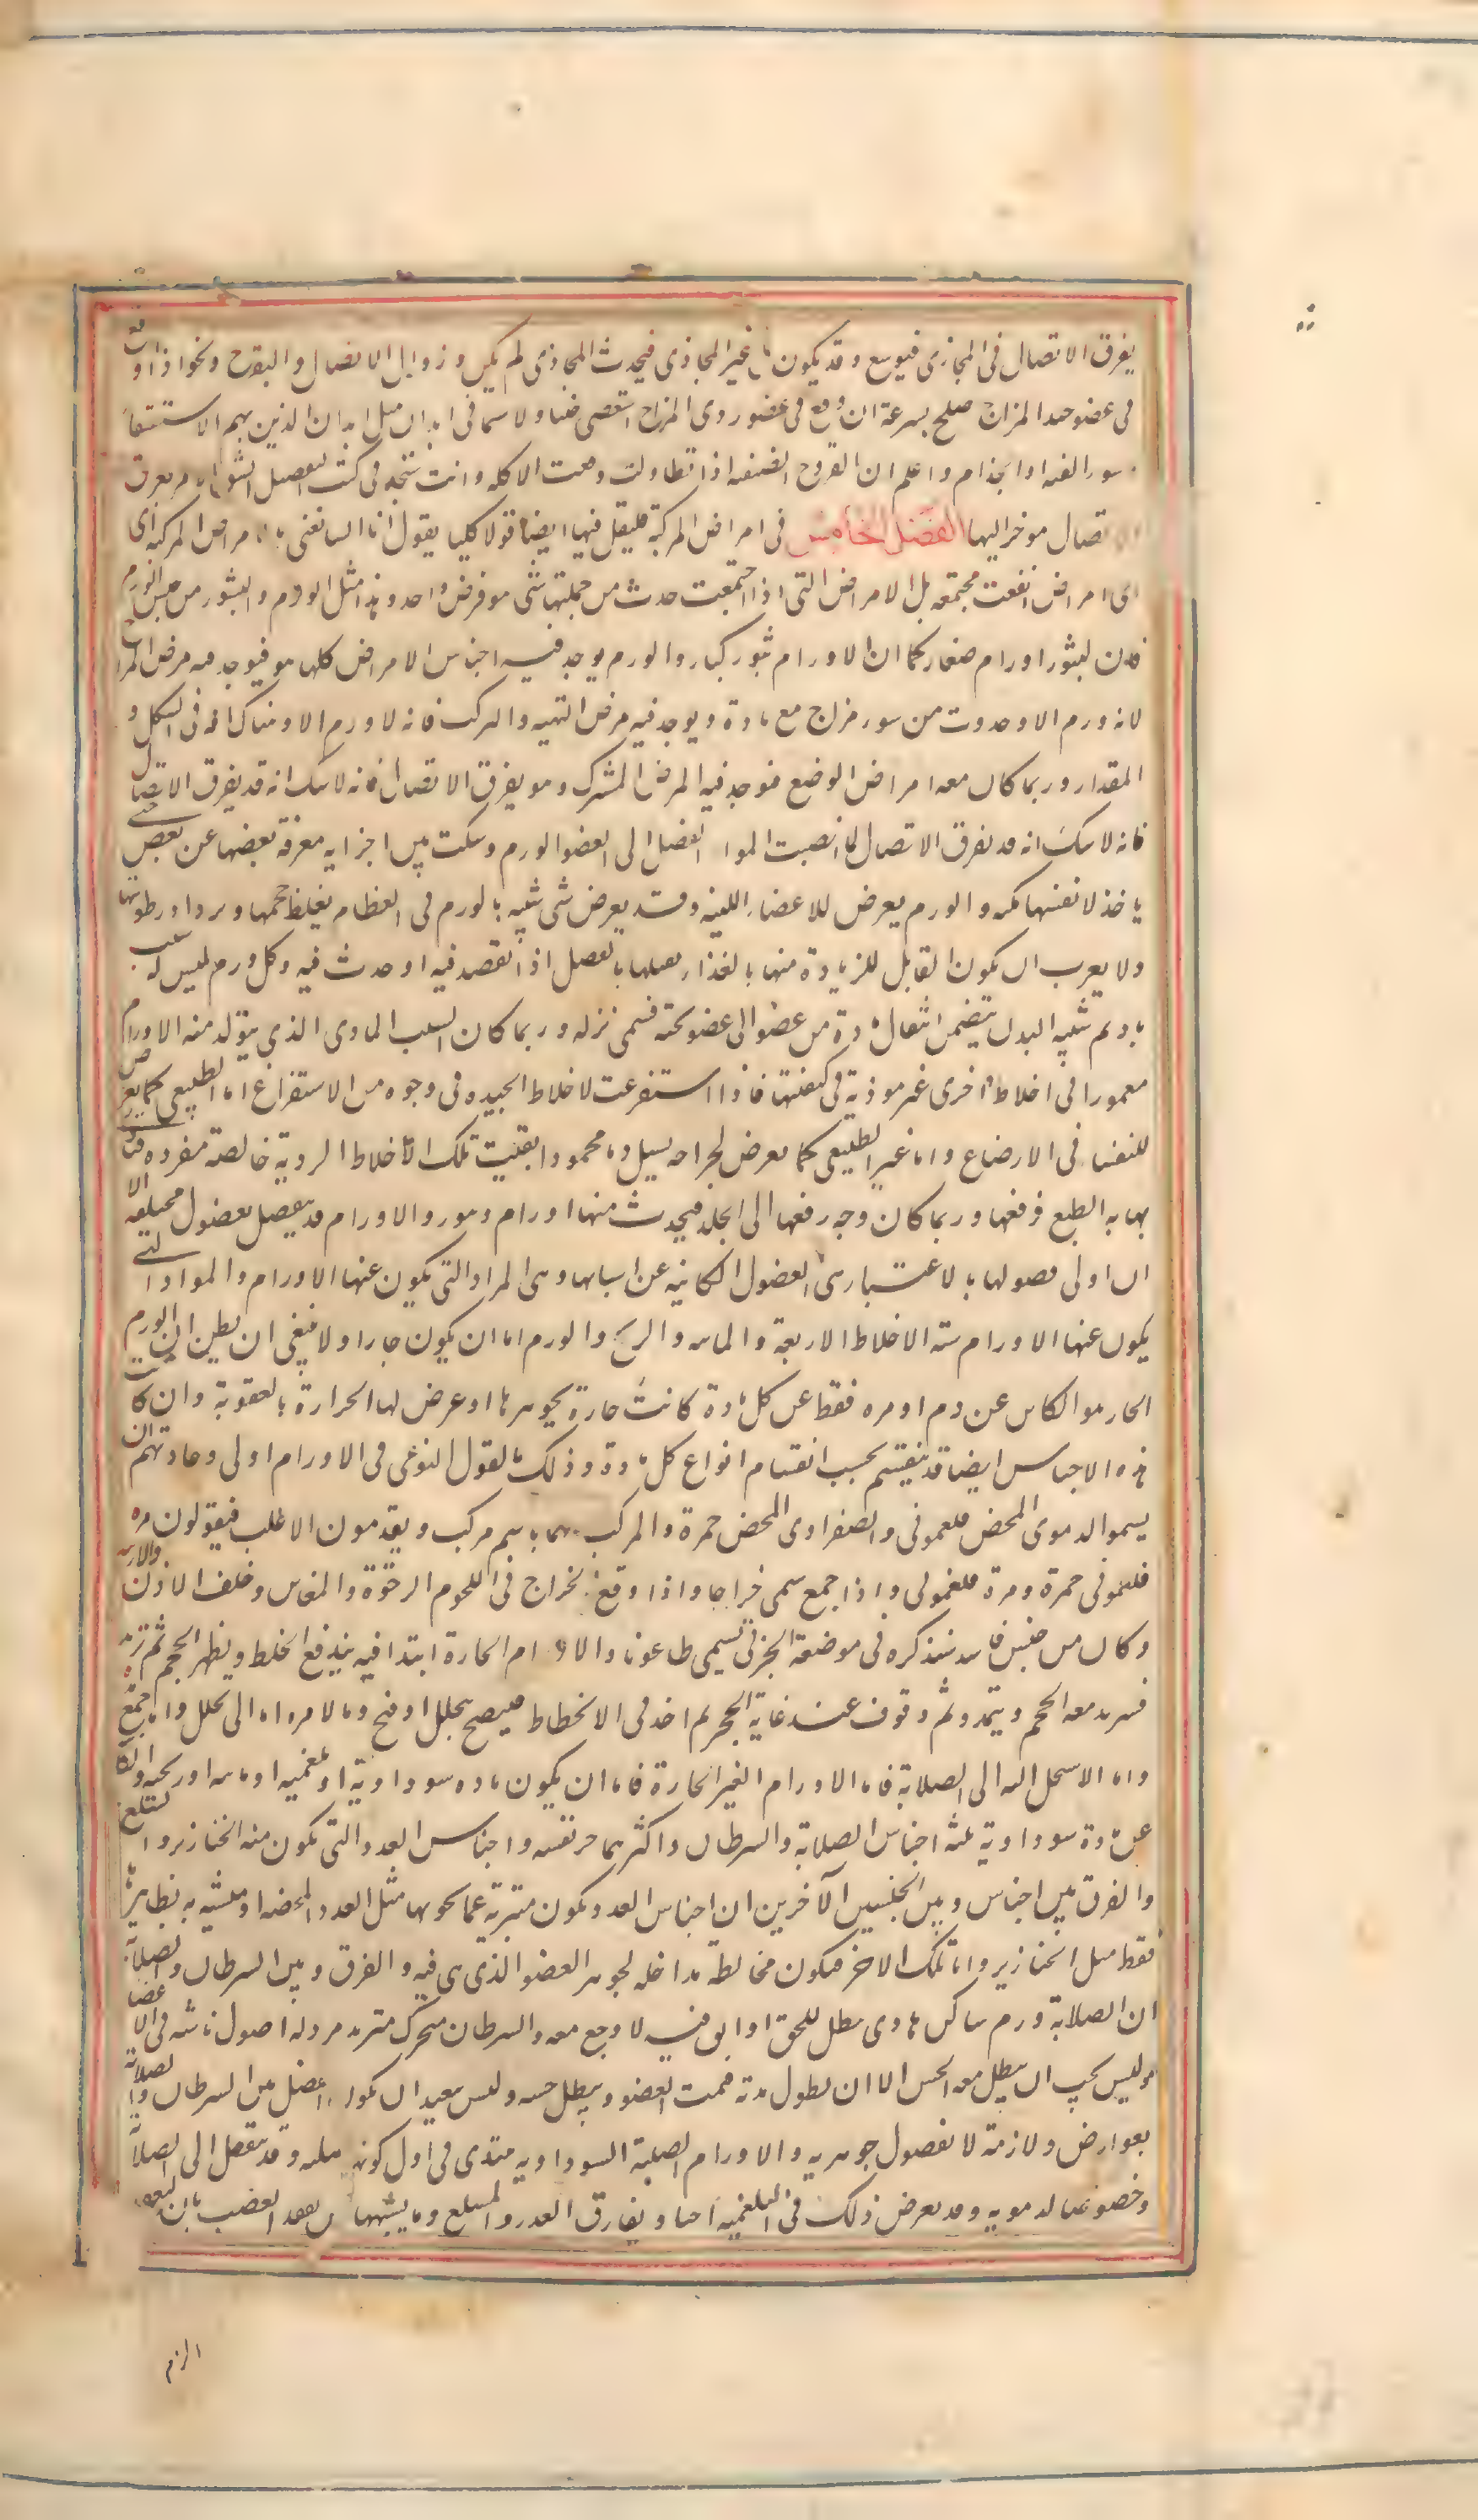 يفرق الاتصال فى المجارى فيوسع وقد يكون غير المجارى فيحدث المجارى لم يكن وزوال الاتصال والقروح ونحوها اذا وقع
فى عضو جيد المزاج صلح بسرعة ان وقع فى عضو ردى المزاج استعصى حينا ولا سيما فى ابدان مثل ابدان الذين بهم الاستسقاء
سو القنيه او الجذام واعلم ان القروح الصيفيه اذا تطاولت وقعت الاكله وانت ستجد فى كتب التفصيل تفرق
الاتصال موخرا اليها الفصل الخامس فى امراض المركبة فليقل فيها ايضا قولا كليا يقول انا لسنا نعنى بالامراض المركبه اى
اى امراض اتفقت مجتمعه بل الامراض التى اذا اجتمعت حدث من جملتها شى هو مرض واحد وهذا مثل الورم والبثور من جنس الورم
فان البثور اورام صغار كما ان الاورام بثور كبار والورم يوجد فيه اجناس الامراض كلها هو فيوجد فيه مرض المزاج
لانه ورم الا وحدوث من سور مزاج مع مادة ويوجد فيه مرض الهيه والتركيب فانه لا ورم الا وهناك افة فى الشكل و
المقدار وربما كان معه امراض الوضع فيوجد فيه المرض المشترك وهو يفرق الاتصال فانه لاشك انه قد يفرق الاتصال
فانه لاشك انه قد تفرق الاتصال لما انصبت المواد الفضل الى العضو الورم وسكنت بين اجزايه مفرقة بعضها عن بعض حتى
ياخذ لانفسها امكنه والورم يعرض للاعضاء اللينه وقد يعرض شى شبيه بالورم فى العظام يغلظ حجمها ويزداد رطوبتها
ولا يعرب ان يكون القابل للزيادة منها بالغذاء يقبلها بالفضل اذا انقصد فيه او حدث فيه وكل ورم ليس له سبب
باد ثم شبيه البدل يتضمن انتقال مادة من عضو الى عضو تحته فسمى نزله وربما كان السبب المادى الذى يتولد منه الاورام
مغمورا فى اخلاط اخرى غير موذية فى كيفيتها فاذا استفرغت الاخلاط الجيده فى وجوه من الاستفراغ اما الطبيعى كما يعرض
للنفساء فى الارضاع واما غير الطبيعى كما يعرض لجراحه يسيل دما محمودا بقيت تلك الاخلاط الردية خالصة مفرده فتاذى
بها به الطبع فدفعها وربما كان وجه دفعها الى الجلد فيحدث منها اورام وبثور والاورام قد يفصل بفصول مختلفه الا
ان اولى فصولها بالاعتبار هى الفصول الكاينه عن اسبابها وهى المواد التى يكون عنها الاورام والمواد التى
يكون عنها الاورام ستة الاخلاط الاربعة والمايه والريح والورم اما ان يكون حارا ولا ينبغى ان يظن ان الورم
الحار هو الكاين عن دم او مره فقط عن كل مادة كانت حارة بجوهرها او عرض لها الحرارة بالعفونة وان كانت
هذه الاجناس ايضا قد ينقسم بحسب انقسام انواع كل مادة وذلك بالقول النوعى فى الاورام اولى وعادتهم ان
يسموا الدموى المحض فلغمونى والصفراوى المحض حمرة والمركب منهما باسم مركب ويقدمون الاغلب فيقولون مره
فلغمونى حمرة ومرة فلغمونى واذا جمع سمى خراجا واذا وقع الخراج فى اللحوم الرخوة والمغابن وخلف الاذن والاربيه
وكان من جنس فاسد سنذكره فى موضعه الجزئى يسمى طاعونا والاورام الحارة ابتدا فيه يندفع الخلط ويظهر الحجم ثم تزيد
فيزيد معه الحجم ويتمدد ثم وقوف عند غاية الحجم ثم اخذ فى الانحطاط فينضج بتحلل او قيح ومالا مره اما الى تحلل واما جمع
واما الاستحاله الى الصلابة فاما الاورام الغير الحارة فاما ان يكون ماده سوداوية او بلغميه او مايه او ريحيه والكاينه
عن مادة سوداوية ثلثه اجناس الصلابة والسرطان واكثرهما خريفيه واجناس الغدد التى يكون منه الخنازير والسلع
والفرق بين اجناس وبين الجنسين الآخرين ان اجناس الغدد يكون متبرية عما يحويها مثل الغدد المحضه او متشبثه به بظاهره
فقط مثل الخنازير واما تلك الاخر فيكون مخالطة مداخله لجوهر العضو الذى هى فيه والفرق وبين السرطان والصلابة
ان الصلابة ورم ساكن هادى مبطل للحس او ايف فيه لا وجع معه والسرطان متحرك متزيد مردله اصول ناشبه فى الاعضا
وليس يجب ان يبطل معه الحس الا ان يطول مدة فيميت العضو ويبطل حسه وليس ببعيد ان يكون الفصل بين السرطان والصلابة
بعوارض ولازمة لا بفصول جوهريه والاورام الصلبة السوداويه مبتدى فى اول كونه صلبه وقد ينتقل الى الصلابة
وخصوصا الدمويه وقد يعرض ذلك فى البلغميه احيانا ويفارق الغدد والسلع وما يشبهها من تعقد العصب بان التعقد
الزم